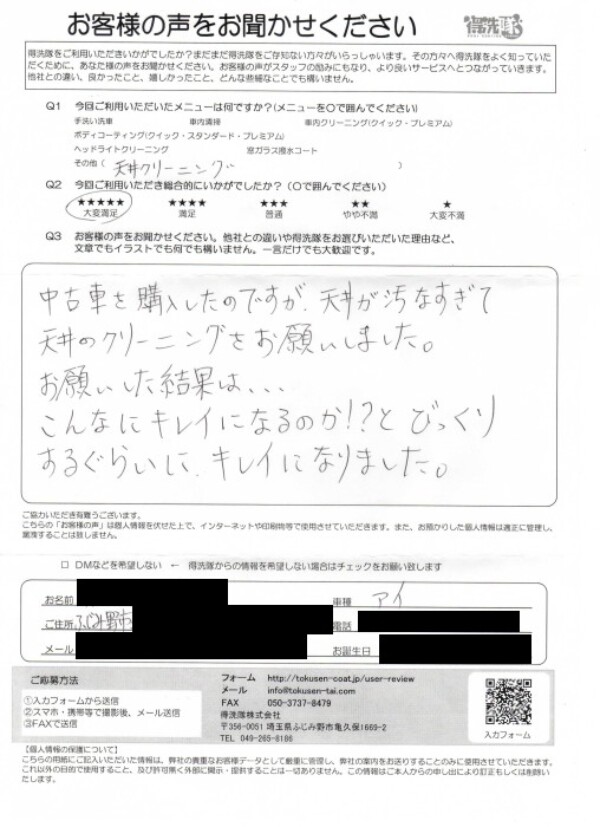 お客様の声をお聞かせください
得洗隊
得洗隊をご利用いただきいかがでしたか？まだまだ得洗隊をご存知ない方々がいらっしゃいます。その方々へ得洗隊をよく知っていた
だくために、あなた様の声をお聞かせください。お客様の声がスタッフの励みにもなり、より良いサービスへとつながっていきます。
他社との違い、良かったこと、嬉しかったこと、どんな些細なことでも構いません。
Q1 今回ご利用いただいたメニューは何ですか？(メニューを〇で囲んでください)
手洗い洗車 車内清掃 車内クリーニング(クイック・プレミアム)
ボディコーティング(クイック・スタンダード・プレミアム)
ヘッドライトクリーニング 窓ガラス撥水コート
その他( 天井クリーニング )
Q2 今回ご利用いただき総合的にいかがでしたか？(〇で囲んでください)
★★★★★ ★★★★ ★★★ ★★ ★
大変満足 満足 普通 やや不満 大変不満
Q3 お客様の声をお聞かせください。他社との違いや得洗隊をお選びいただいた理由など、
文章でもイラストでも何でも構いません。一言だけでも大歓迎です。
中古車を購入したのですが、天井が汚なすぎて
天井のクリーニングをお願いしました。
お願いした結果は、、、
こんなにキレイになるのか!?と びっくり
するぐらいに、キレイになりました。
ご協力いただき有難うございます。
こちらの「お客様の声」は個人情報を伏せた上で、インターネットや印刷物等で使用させていただきます。また、お預かりした個人情報は適正に管理し、
漏洩することは致しません。
□ DMなどを希望しない ← 得洗隊からの情報を希望しない場合はチェックをお願い致します
お名前 車種 アイ
ご住所 ふじみ野市 電話
メール お誕生日
ご応募方法
①入力フォームから送信
②スマホ・携帯等で撮影後、メール送信
③FAXで送信
フォーム http://tokusen-coat.jp/user-review
メール info@tokusen-tai.com
FAX 050-3737-8479
得洗隊株式会社
〒356-0051 埼玉県ふじみ野市亀久保1669-2
TEL 049-265-8186
入力フォーム
【個人情報の保護について】
こちらの用紙にご記入いただいた情報は、弊社の貴重なお客様データとして厳重に管理し、弊社の案内をお送りすることのみに使用させていただきます。
これ以外の目的で使用すること、及び許可無く外部に開示・提供することは一切ありません。この情報はご本人からの申し出により訂正もしくは削除い
たします。